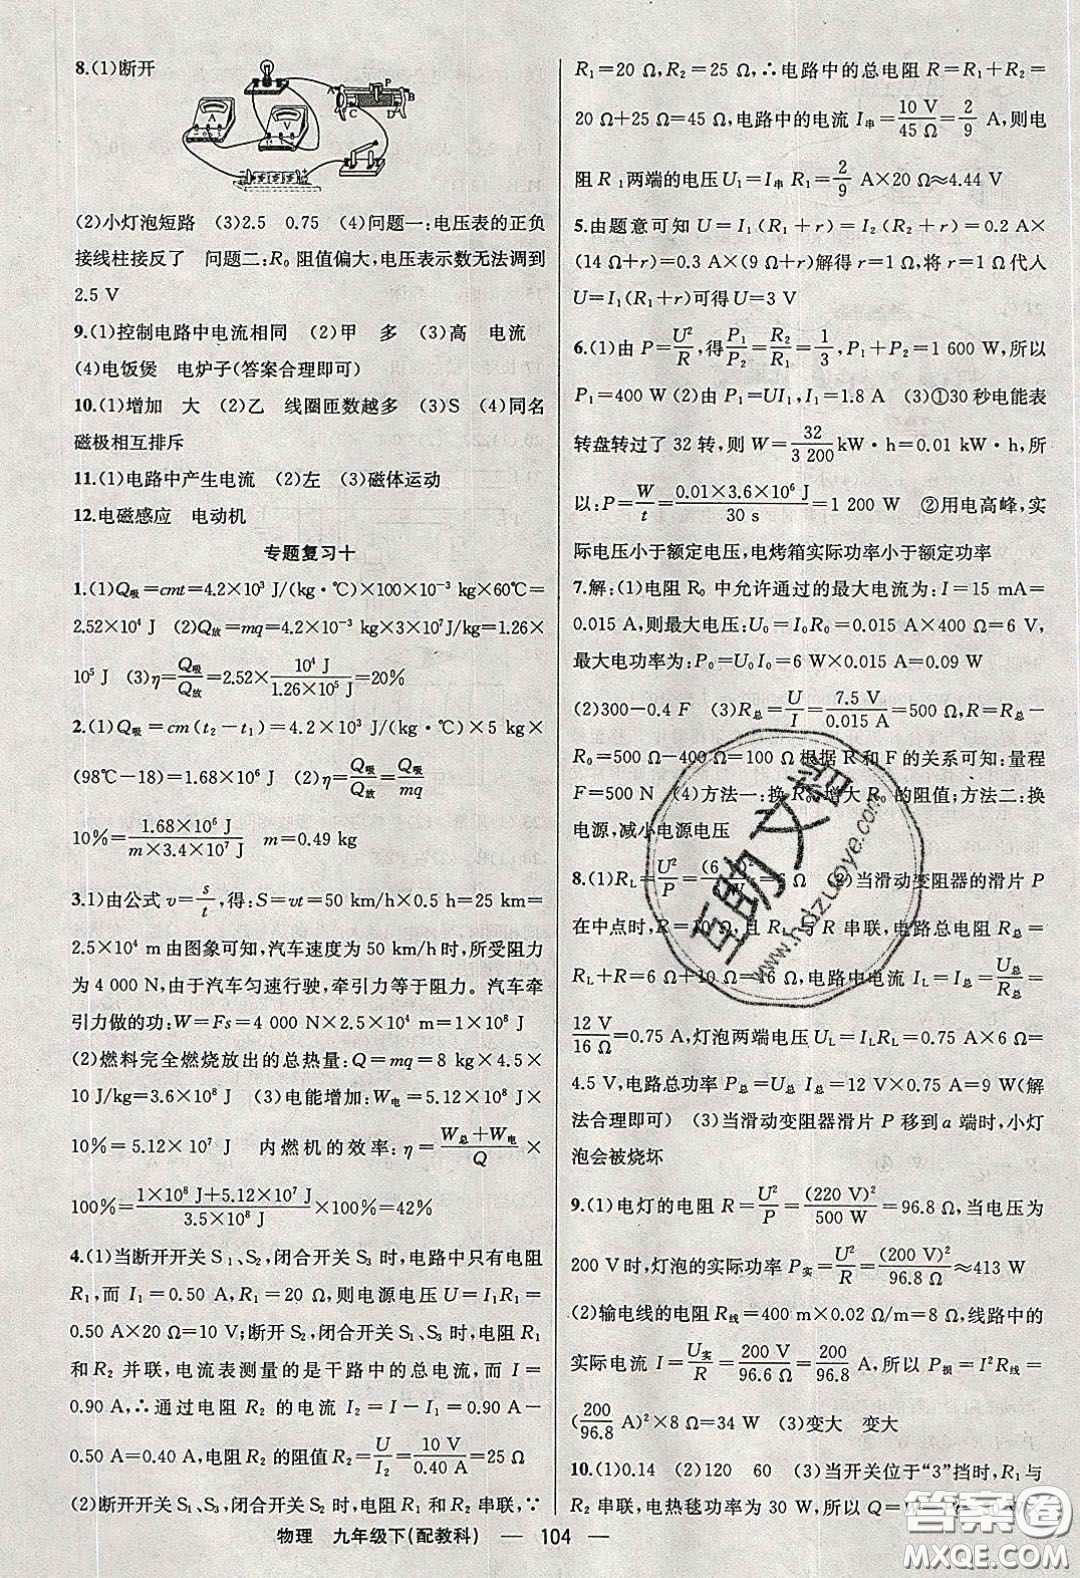 8.(1)断开
A
V
A
P
B
C
D
(2)小灯泡短路 (3)2.5 0.75 (4)问题一:电压表的正负
接线柱接反了 问题二:R₀阻值偏大,电压表示数无法调到
2.5 V
9.(1)控制电路中电流相同 (2)甲 多 (3)高 电流
(4)电饭煲 电炉子(答案合理即可)
10.(1)增加 大 (2)乙 线圈匝数越多 (3)S (4)同名
磁极相互排斥
11.(1)电路中产生电流 (2)左 (3)磁体运动
12.电磁感应 电动机
专题复习十
1.(1)Q吸=cmt=4.2×10³ J/(kg·℃)×100×10⁻³ kg×60℃=
2.52×10⁴ J (2)Q放=mq=4.2×10⁻³ kg×3×10⁷J/kg=1.26×
10⁵ J (3)η=Q吸/Q放=2.52×10⁴ J/1.26×10⁵ J=20%
2.(1)Q吸=cm(t₂−t₁)=4.2×10³ J/(kg·℃)×5 kg×
(98℃−18)=1.68×10⁶ J (2)η=Q吸/Q放=Q吸/mq
10%=1.68×10⁶ J/m×3.4×10⁷ J m=0.49 kg
3.1)由公式 v=s/t,得:S=vt=50 km/h×0.5 h=25 km=
2.5×10⁴ m 由图象可知,汽车速度为 50 km/h时,所受阻力
为 4 000 N,由于汽车匀速行驶,牵引力等于阻力。汽车牵
引力做的功:W=Fs=4 000 N×2.5×10⁴ m=1×10⁸ J
(2)燃料完全燃烧放出的总热量:Q=mq=8 kg×4.5×
10 J/kg=3.6×10⁸ J (3)电能增加:W电=5.12×10⁸ J×
10%=5.12×10⁷ J 内燃机的效率:η=W总+W电/Q×
100%=1×10⁸ J+5.12×10⁷ J/3.5×10⁸ J×100%=42%
4.(1)当断开开关 S₁、S₂,闭合开关 S₃ 时,电路中只有电阻
R₁,而 I₁=0.50 A,R₁=20 Ω,则电源电压 U=I₁R₁=
0.50 A×20 Ω=10 V;断开 S₂,闭合开关 S₁、S₃ 时,电阻 R₁
和 R₂ 并联,电流表测量的是干路中的总电流,而 I=
0.90 A,∴通过电阻 R₂ 的电流 I₂=I−I₁=0.90 A−
0.50 A=0.40 A,电阻 R₂ 的阻值 R₂=U/I₂=10 V/0.40 A=25 Ω
(2)断开开关 S₁、S₃,闭合开关 S₂ 时,电阻 R₁ 和 R₂ 串联,∵
R₁=20 Ω,R₂=25 Ω,∴电路中的总电阻 R=R₁+R₂=
20 Ω+25 Ω=45 Ω,电路中的电流 I串=10 V/45 Ω=2/9 A,则电
阻 R₁ 两端的电压 U₁=I串 R₁=2/9 A×20 Ω≈4.44 V
5.由题意可知 U=I₁(R₁+r)=I₂(R₂+r)=0.2 A×
(14 Ω+r)=0.3 A×(9 Ω+r)解得 r=1 Ω,将 r=1 Ω代人
U=I₁(R₁+r)可得 U=3 V
6.(1)由 P=U²/R,得P₁/P₂=R₂/R₁=1/3,P₁+P₂=1 600 W,所以
P₁=400 W (2)由 P₁=UI₁,I₁=1.8 A (3)①30 秒电能表
转盘转过了 32 转,则 W=32/3 200 kW·h=0.01 kW·h,所
以:P=W/t=0.01×3.6×10⁶ J/30 s=1 200 W ②用电高峰,实
际电压小于额定电压,电烤箱实际功率小于额定功率
7.解:(1)电阻 R₀ 中允许通过的最大电流为:I=15 mA=
0.015 A,则最大电压:U₀=I₀R₀=0.015 A×400 Ω=6 V,
最大电功率为:P₀=U₀I₀=6 W×0.015 A=0.09 W
(2)300−0.4 F (3)R总=U/I=7.5 V/0.015 A=500 Ω,R=R总−
R₀=500 Ω−400 Ω=100 Ω 根据 R 和 F 的关系可知:量程
F=500 N (4)方法一:换 R₀,增大 R₀ 的阻值;方法二:换
电源,减小电源电压
8.(1)R_L=U²/P=(6 V)²/ = Ω (2)当滑动变阻器的滑片 P
在中点时,R=10 Ω,且 R_L 与 R 串联,电路总电阻 R总=
R_L+R=6 Ω+10 Ω=16 Ω,电路中电流 I_L=I总=U总/R总=
12 V/16 Ω=0.75 A,灯泡两端电压 U_L=I_LR_L=0.75 A×6 Ω=
4.5 V,电路总功率 P总=U总 I总=12 V×0.75 A=9 W(解
法合理即可) (3)当滑动变阻器滑片 P 移到 a 端时,小灯
泡会被烧坏
9.(1)电灯的电阻 R=U²/P=(220 V)²/500 W=96.8 Ω 当电压为
200 V时,灯泡的实际功率 P实=U²/R=(200 V)²/96.8 Ω≈413 W
(2)输电线的电阻 R线=400 m×0.02 Ω/m=8 Ω,线路中的
实际电流 I=U实/R=200 V/96.6 Ω=200/96.8 A,所以 P损=I²R线=
(200/96.8 A)²×8 Ω=34 W (3)变大 变大
10.(1)0.14 (2)120 60 (3)当开关位于“3”挡时,R₁与
R₂ 串联,电热毯功率为 30 W,所以 Q=
物理 九年级下(配教科) — 104 —
互助文智
www.hdzuoye.com
答案圈
MXQE.COM